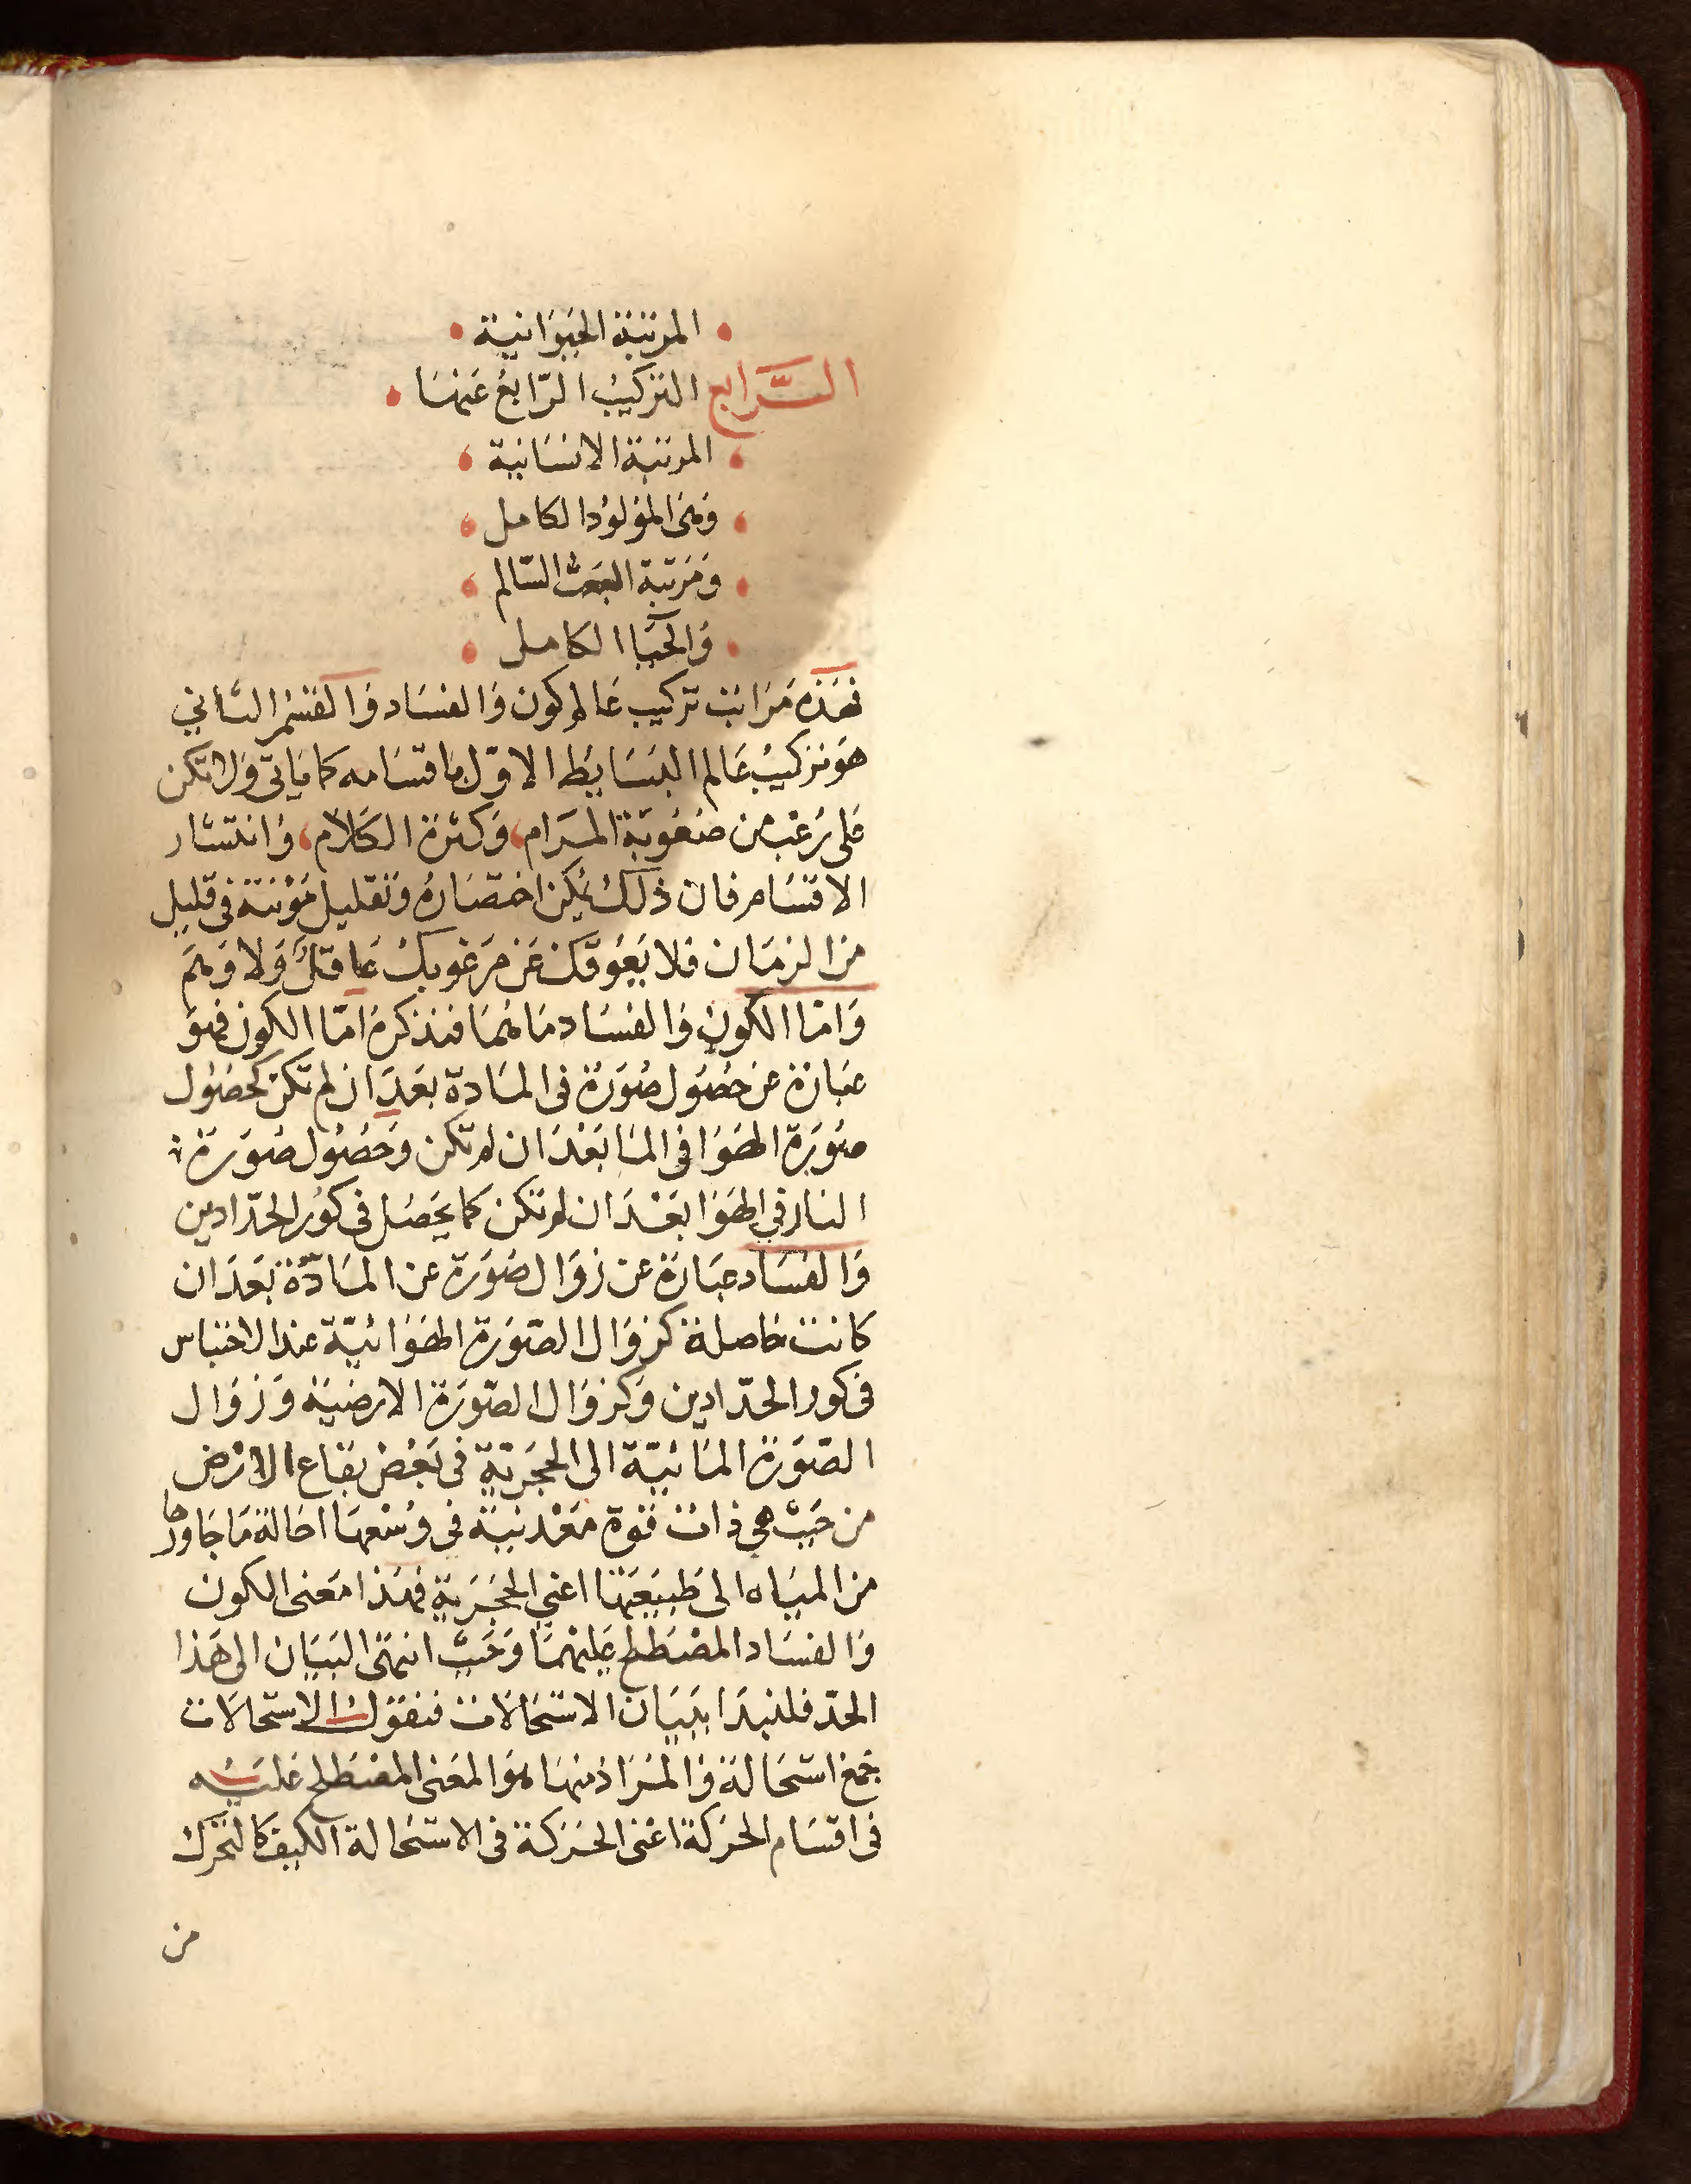 المرتبة الحيوانية
الرابع التركيب الرابع عنها
المرتبة الانسانية
وهى المولود الكامل
ومرتبة البعث السالم
والحيا الكامل
فهذه مراتب تركيب عالم كون والفساد والقسم الثانى
هو تركيب عالم البسايط الاول باقسامه كما ياتى ولا تكن
على رعب من صعوبة المرام، وكثرة الكلام، وانتشار
الاقسام فان ذلك يمكن اختصاره وتقليل مؤنته فى قليل
من الزمان فلا يعوقك عن مرغوبك عاقل ولا وهم
واما الكون والفساد ما هما فنذكره اما الكون فهو
عبارة عن حصول صورة فى المادة بعد ان لم تكن كحصول
صورة الهوا فى الما بعد ان لم تكن وحصول صورة
النار في الهوا بعد ان لم تكن كما يحصل فى كور الحدادين
والفساد عبارة عن زوال صورة عن المادة بعد ان
كانت حاصلة كزوال الصورة الهوائية عند الاحتباس
فى كور الحدادين وكزوال الصورة الارضية وزوال
الصورة المائية الى الحجرية فى بعض بقاع الارض
من حيث هي ذات قوة معدنية فى وسعها احالة ما جاورها
من المياه الى طبيعتها اعني الحجرية فهذا معنى الكون
والفساد المصطلح عليهما وحيث انتهى البيان الى هذا
الحد فلنبدا ببيان الاستحالات فنقول الاستحالات
جمع استحالة والمراد منها هو المعنى المصطلح عليه
فى اقسام الحركة اعنى الحركة فى الاستحالة الكيف كالتحرك
من